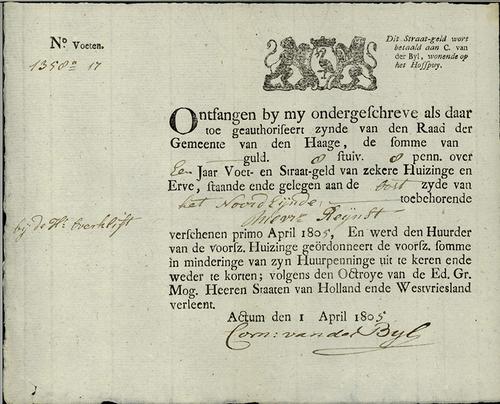 No. Voeten.
1358 n 17
Dit Straat-geld wort
betaald aan C. van
der Byl, wonende op
het Hoffpoy.
Ontfangen by my ondergeschreve als daar
toe geauthoriseert zynde van den Raad der
Gemeente van den Haage, de somme van
guld. 8 stuiv. 8 penn. over
Een Jaar Voet- en Straat-geld van zekere Huizinge en
Erve, staande ende gelegen aan de Oost zyde van
het Noord Eynde toebehorende
Reynst
bij de Hr Overklift
verschenen primo April 1805, En werd den Huurder
van de voorsz. Huizinge geördonneert de voorsz. somme
in minderinge van zyn Huurpenninge uit te keren ende
weder te korten; volgens den Octroye van de Ed. Gr.
Mog. Heeren Staaten van Holland ende Westvriesland
verleent.
Actum den 1 April 1805
Corn: van der Byl